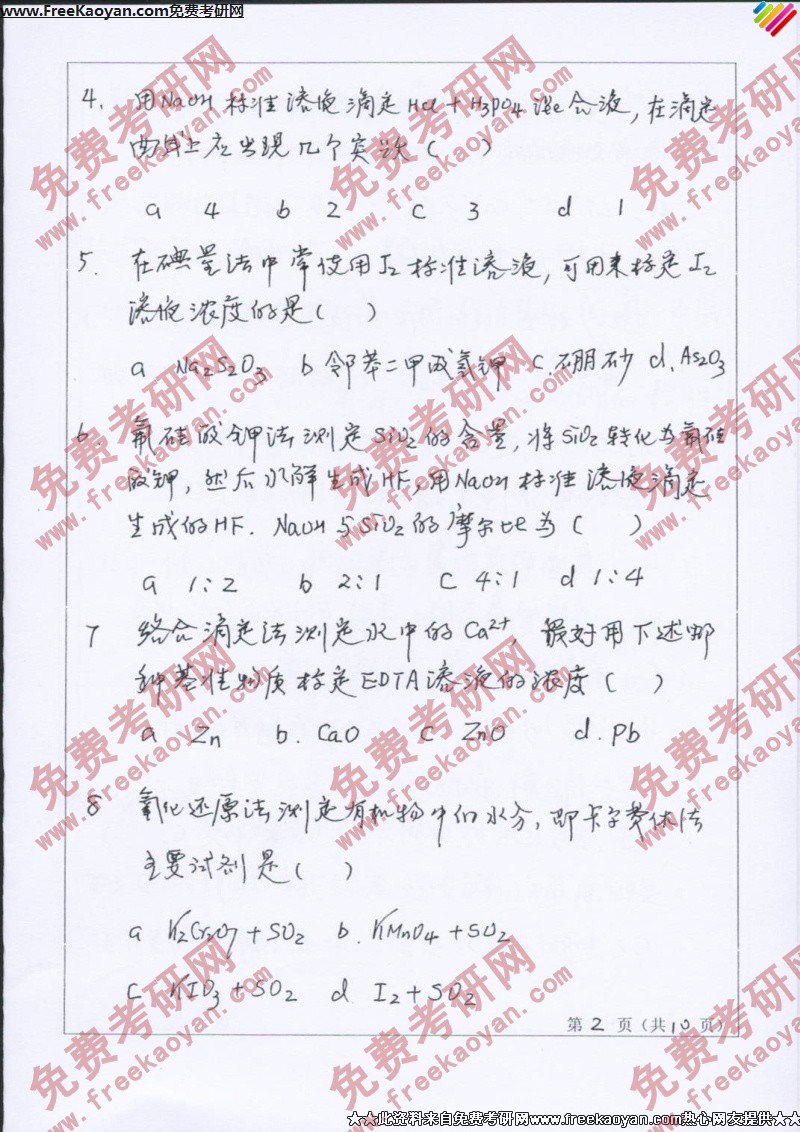 www.FreeKaoyan.com免费考研网
4. 用NaOH标准溶液滴定HCl+H3PO4混合液,在滴定
曲线上应出现几个突跃( )
a 4 b 2 c 3 d 1
5. 在碘量法中常使用I2标准溶液,可用来标定I2
溶液浓度的是( )
a Na2S2O3 b 邻苯二甲酸氢钾 C.硼砂 d. As2O3
6. 氟硅酸钾法测定SiO2的含量,将SiO2转化为氟硅
酸钾,然后水解生成HF,用NaOH标准溶液滴定
生成的HF. NaOH与SiO2的摩尔比为( )
a 1:2 b 2:1 C 4:1 d 1:4
7 络合滴定法测定水中的Ca2+, 最好用下述哪
种基准物质标定EDTA溶液的浓度( )
a Zn b. CaO C ZnO d. Pb
8 氧化还原法测定有机物中的水分,即卡字费休法
主要试剂是( )
a K2Cr2O7+SO2 b. KMnO4+SO2
C KIO3+SO2 d I2+SO2
第 2 页(共10页)
免费考研网
www.freekaoyan.com
★★此资料来自免费考研网www.freekaoyan.com热心网友提供★★